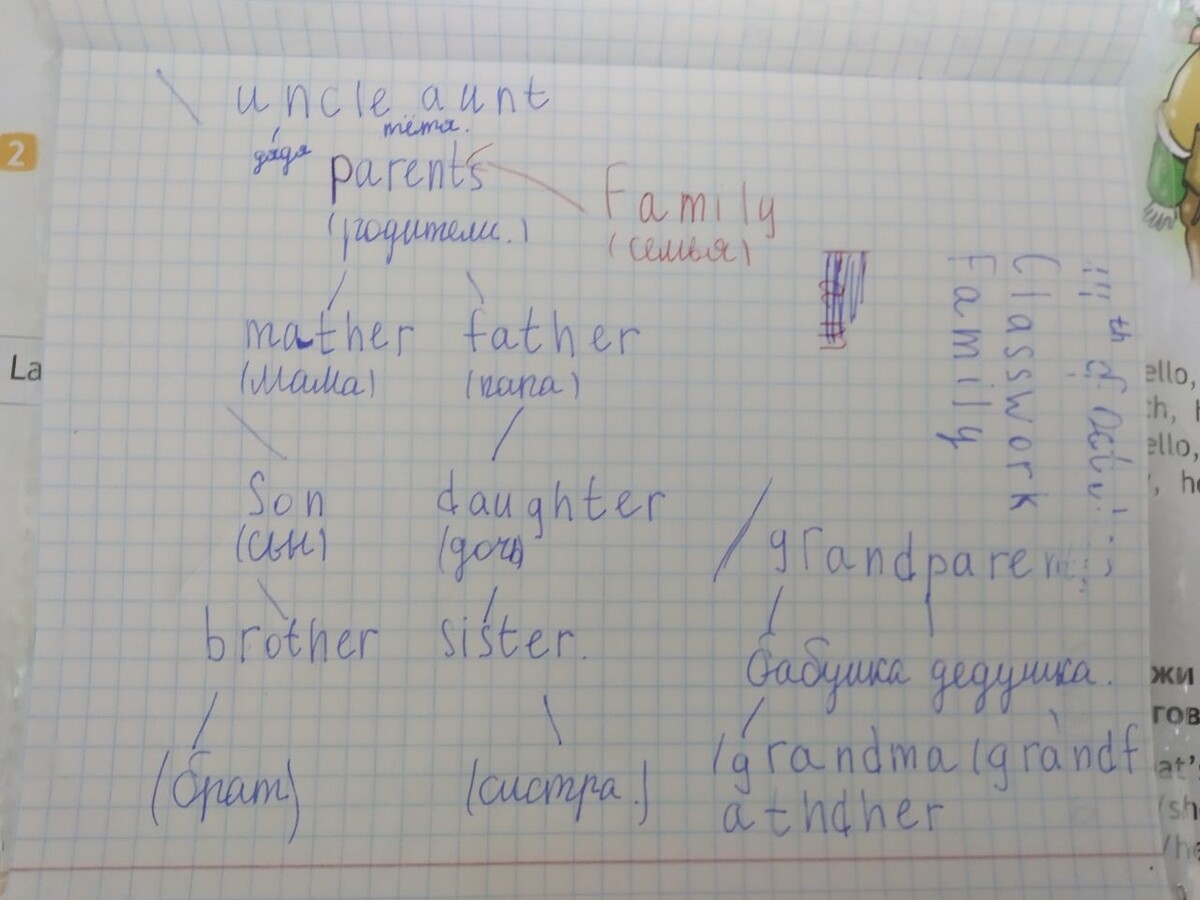 uncle aunt
дядя тётя.
parents
Family
(родители.)
(семья)
mather father
(мама) (папа)
Son daughter
(сын) (дочь)
brother sister.
(брат) (систра.)
grandparen
бабушка дедушка.
(grandma (grandf
athdher
Classwork
Family
2
La
ello,
th, h
ello,
, he
жи
гов
at'
/sh
/he